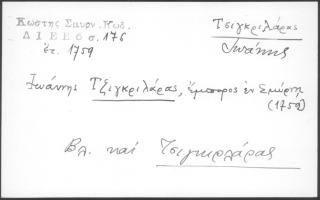 Κωστής Σμυρν. Κωδ.
Δ Ι Ε Ε 6 σ. 176
ἔτ. 1759
Τσιγκριλάρας
Ἰωάννης
Ἰωάννης Τζιγκριλάρας, ἔμπορος ἐν Σμύρνῃ
(1759)
Βλ. καὶ Τσιγκρλάρας